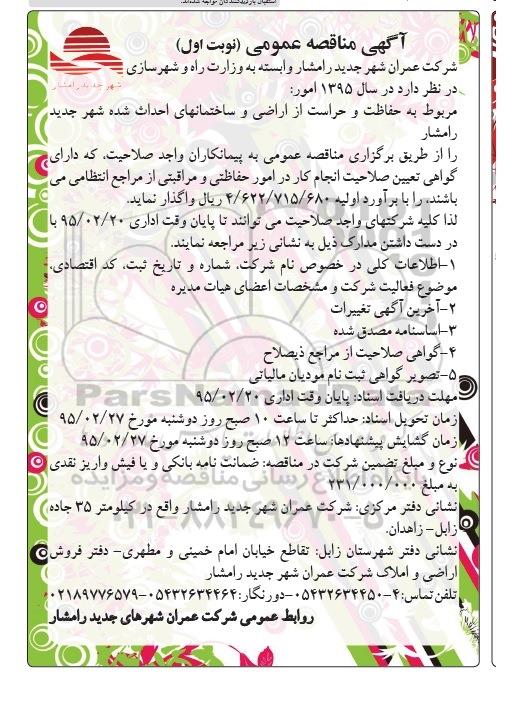 استقبال بازدیدکنندگان مواجه شده‌اند.
آگهی مناقصه عمومی (نوبت اول)
شهر جدید رامشار
شرکت عمران شهر جدید رامشار وابسته به وزارت راه و شهرسازی
در نظر دارد در سال ۱۳۹۵ امور:
مربوط به حفاظت و حراست از اراضی و ساختمانهای احداث شده شهر جدید
رامشار
را از طریق برگزاری مناقصه عمومی به پیمانکاران واجد صلاحیت، که دارای
گواهی تعیین صلاحیت انجام کار در امور حفاظتی و مراقبتی از مراجع انتظامی می
باشند، را با برآورد اولیه ۴/۶۲۲/۷۱۵/۶۸۰ ریال واگذار نماید.
لذا کلیه شرکتهای واجد صلاحیت می توانند تا پایان وقت اداری ۹۵/۰۲/۲۰ با
در دست داشتن مدارک ذیل به نشانی زیر مراجعه نمایند.
۱-اطلاعات کلی در خصوص نام شرکت، شماره و تاریخ ثبت، کد اقتصادی،
موضوع فعالیت شرکت و مشخصات اعضای هیات مدیره
۲-آخرین آگهی تغییرات
۳-اساسنامه مصدق شده
۴-گواهی صلاحیت از مراجع ذیصلاح
۵-تصویر گواهی ثبت نام مودیان مالیاتی
مهلت دریافت اسناد: پایان وقت اداری ۹۵/۰۲/۲۰
زمان تحویل اسناد: حداکثر تا ساعت ۱۰ صبح روز دوشنبه مورخ ۹۵/۰۲/۲۷
زمان گشایش پیشنهادها: ساعت ۱۲ صبح روز دوشنبه مورخ ۹۵/۰۲/۲۷
نوع و مبلغ تضمین شرکت در مناقصه: ضمانت نامه بانکی و یا فیش واریز نقدی
به مبلغ ۲۳۱/۰۰۰/۰۰۰
نشانی دفتر مرکزی: شرکت عمران شهر جدید رامشار واقع در کیلومتر ۳۵ جاده
زابل- زاهدان.
نشانی دفتر شهرستان زابل: تقاطع خیابان امام خمینی و مطهری- دفتر فروش
اراضی و املاک شرکت عمران شهر جدید رامشار
تلفن تماس:۴-۰۵۴۳۲۶۳۴۴۵۰-دورنگار:۰۵۴۳۲۶۳۴۴۶۴-۰۲۱۸۹۷۷۶۵۷۹
روابط عمومی شرکت عمران شهرهای جدید رامشار